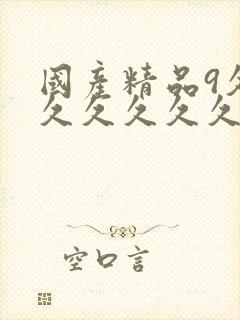 國產精品9久
久久久久久
空口言